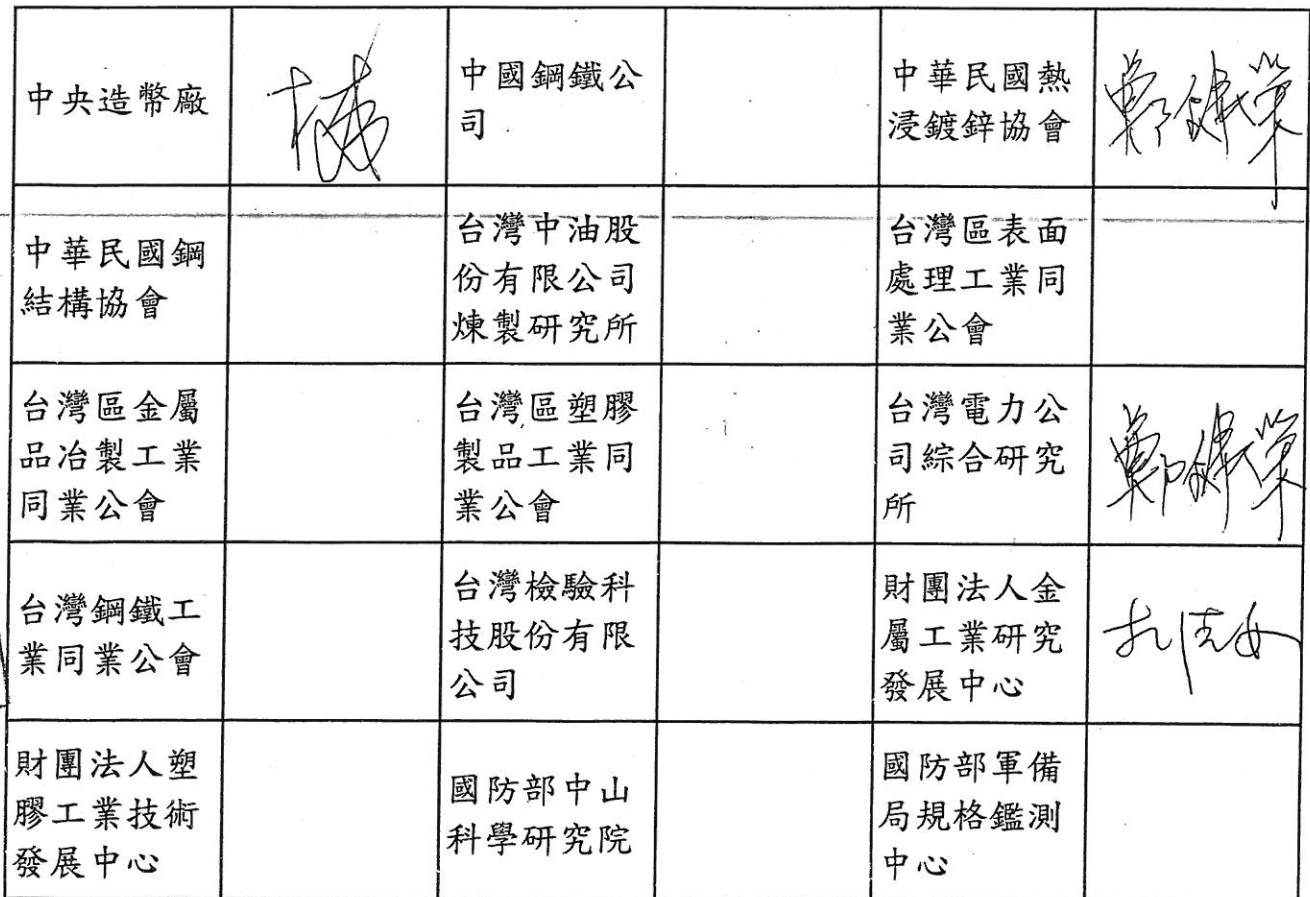 中央造幣廠
中國鋼鐵公
司
中華民國熱
浸鍍鋅協會
鄭錦榮
中華民國鋼
結構協會
台灣中油股
份有限公司
煉製研究所
台灣區表面
處理工業同
業公會
台灣區金屬
品冶製工業
同業公會
台灣區塑膠
製品工業同
業公會
台灣電力公
司綜合研究
所
鄭錦榮
台灣鋼鐵工
業同業公會
台灣檢驗科
技股份有限
公司
財團法人金
屬工業研究
發展中心
財團法人塑
膠工業技術
發展中心
國防部中山
科學研究院
國防部軍備
局規格鑑測
中心